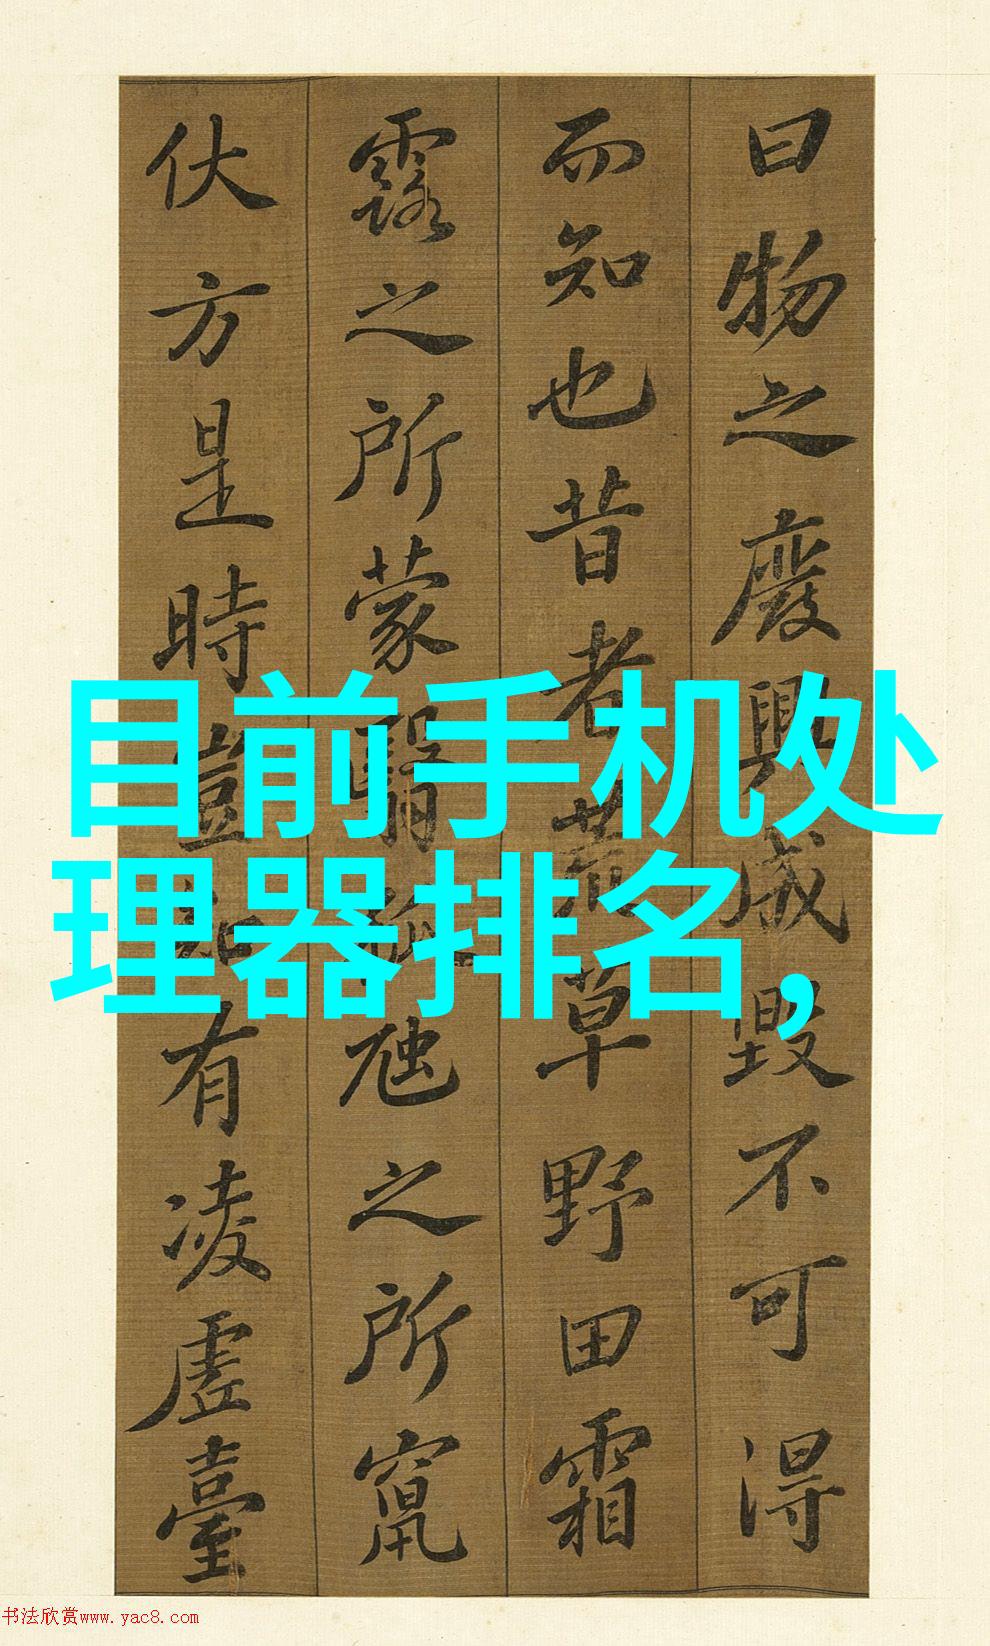 曰物之廢興成毀不可得
而知也昔者荒草野田霜
露之所蒙翳狐虺之所竄
伏方是時豈知有凌虛臺
目前手机处
理器排名，
书法欣赏www.yac8.com